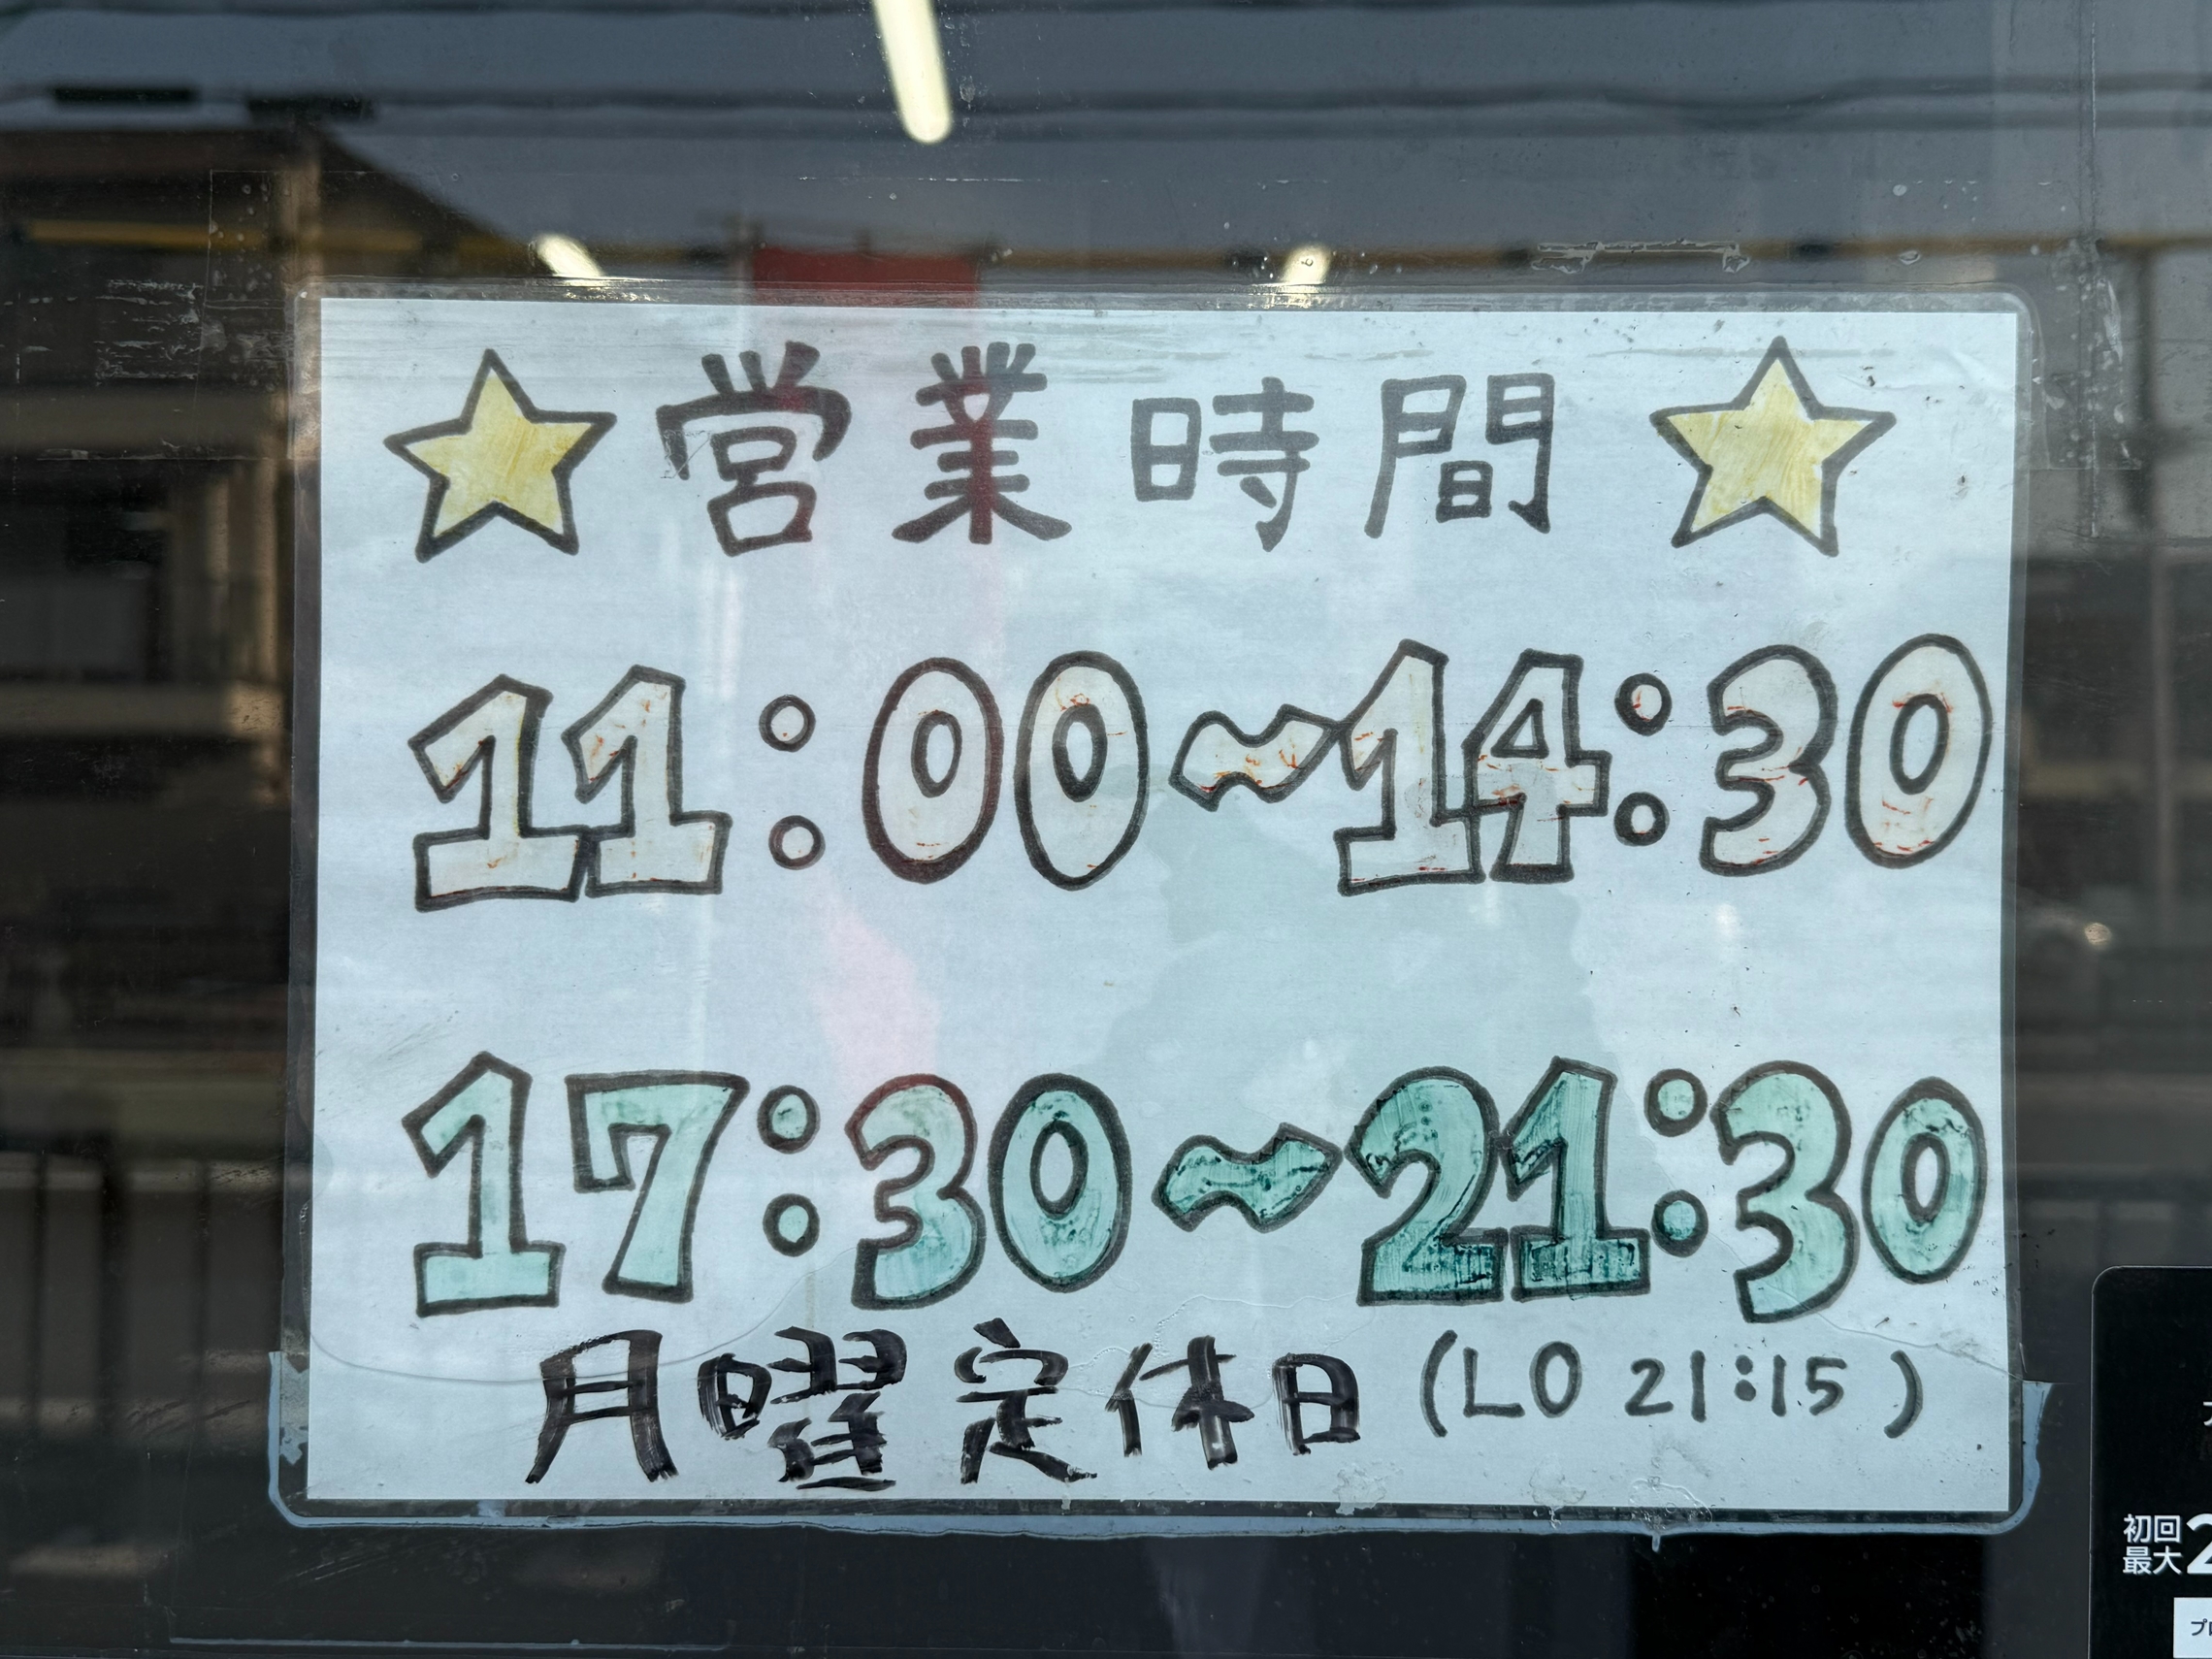 ☆ 営業時間 ☆
11:00~14:30
17:30~21:30
月曜定休日 (LO 21:15)
初回
最大